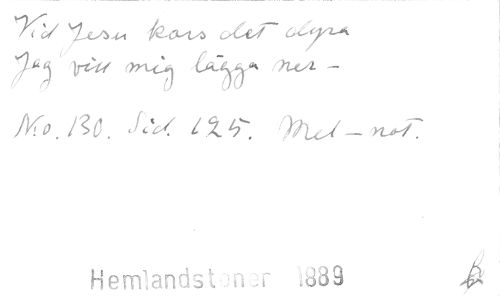 Vid Jesu kors det dyra
Jag vill mig lägga ner –
No. 130. Sid. 125. Mel-not.
Hemlandstoner 1889